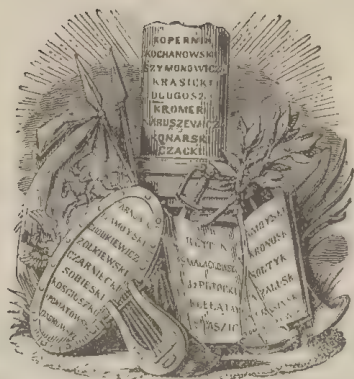 KOPERNIK
KOCHANOWSKI
SZYMONOWICZ
KRASICKI
DŁUGOSZ
KROMER
NARUSZEWICZ
KONARSKI
CZACKI
ZAMOYSKI
CHODKIEWICZ
ŻÓŁKIEWSKI
CZARNIECKI
SOBIESKI
KOSCIUSZKO
MAŁACHOWSKI
J. POTOCKI
KOŁŁĄTAJ
STASZIC
ZAMOYSKI
KORDUSZ
SOŁTYK
ZAŁUSKI